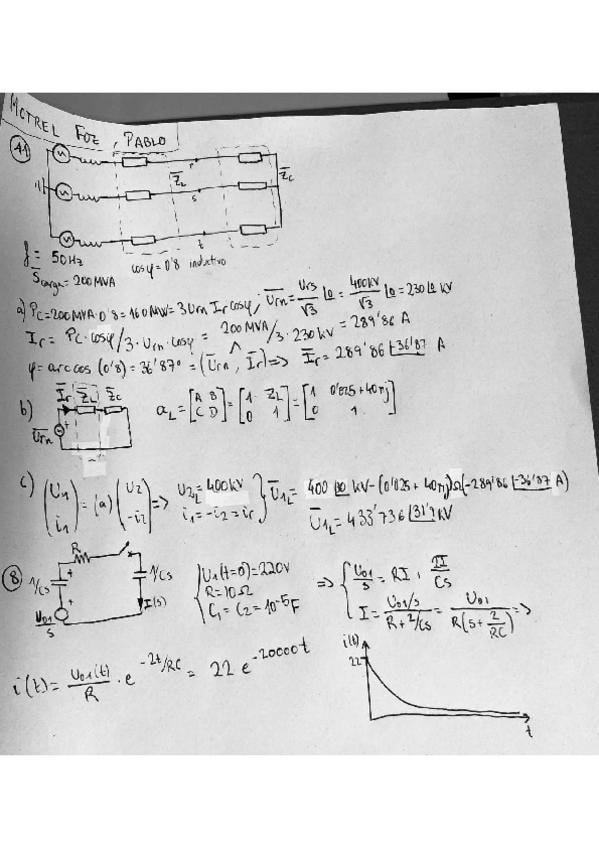 MOTREL FOZ, PABLO
41
r
Z̄L
s
Z̄c
t
f = 50Hz
cosφ = 0'8 inductivo
S̄carga = 200 MVA
a) Pc = 200MVA·0'8 = 160MW = 3Urn Ir cosφ, Ūrn = Urs/√3 ∠0 = 400kV/√3 ∠0 = 230∠0 kV
Ir = Pc·cosφ/3·Urn·cosφ = 200MVA/3·230kV = 289'86 A
φ = arc cos (0'8) = 36'87° = (Ūrn, Īr) => Īr = 289'86 ∠-36'87 A
b) Īr Z̄L Z̄c
Ūrn
+
aL = [A B; C D] = [1 ZL; 0 1] = [1 0'025+40πj; 0 1]
c) (U1; i1) = (a) (U2; -i2) => U2L = 400kV
i1 = -i2 = ir
Ū1L = 400 ∠0 kV - (0'025 + 40πj)Ω(-289'86 ∠-36'87 A)
Ū1L = 433'736 ∠3'7 kV
8
R
1/Cs
+
+
U01/s
1/Cs
I(s)
U1(t=0) = 220V
R = 10Ω
C1 = C2 = 10^-5 F
=> U01/s = RI + 2I/Cs
I = U01/s / R + 2/Cs = U01 / R(s + 2/RC) =>
i(t) = U01(t)/R · e^-2t/RC = 22 e^-20000t
i(t)
22
t